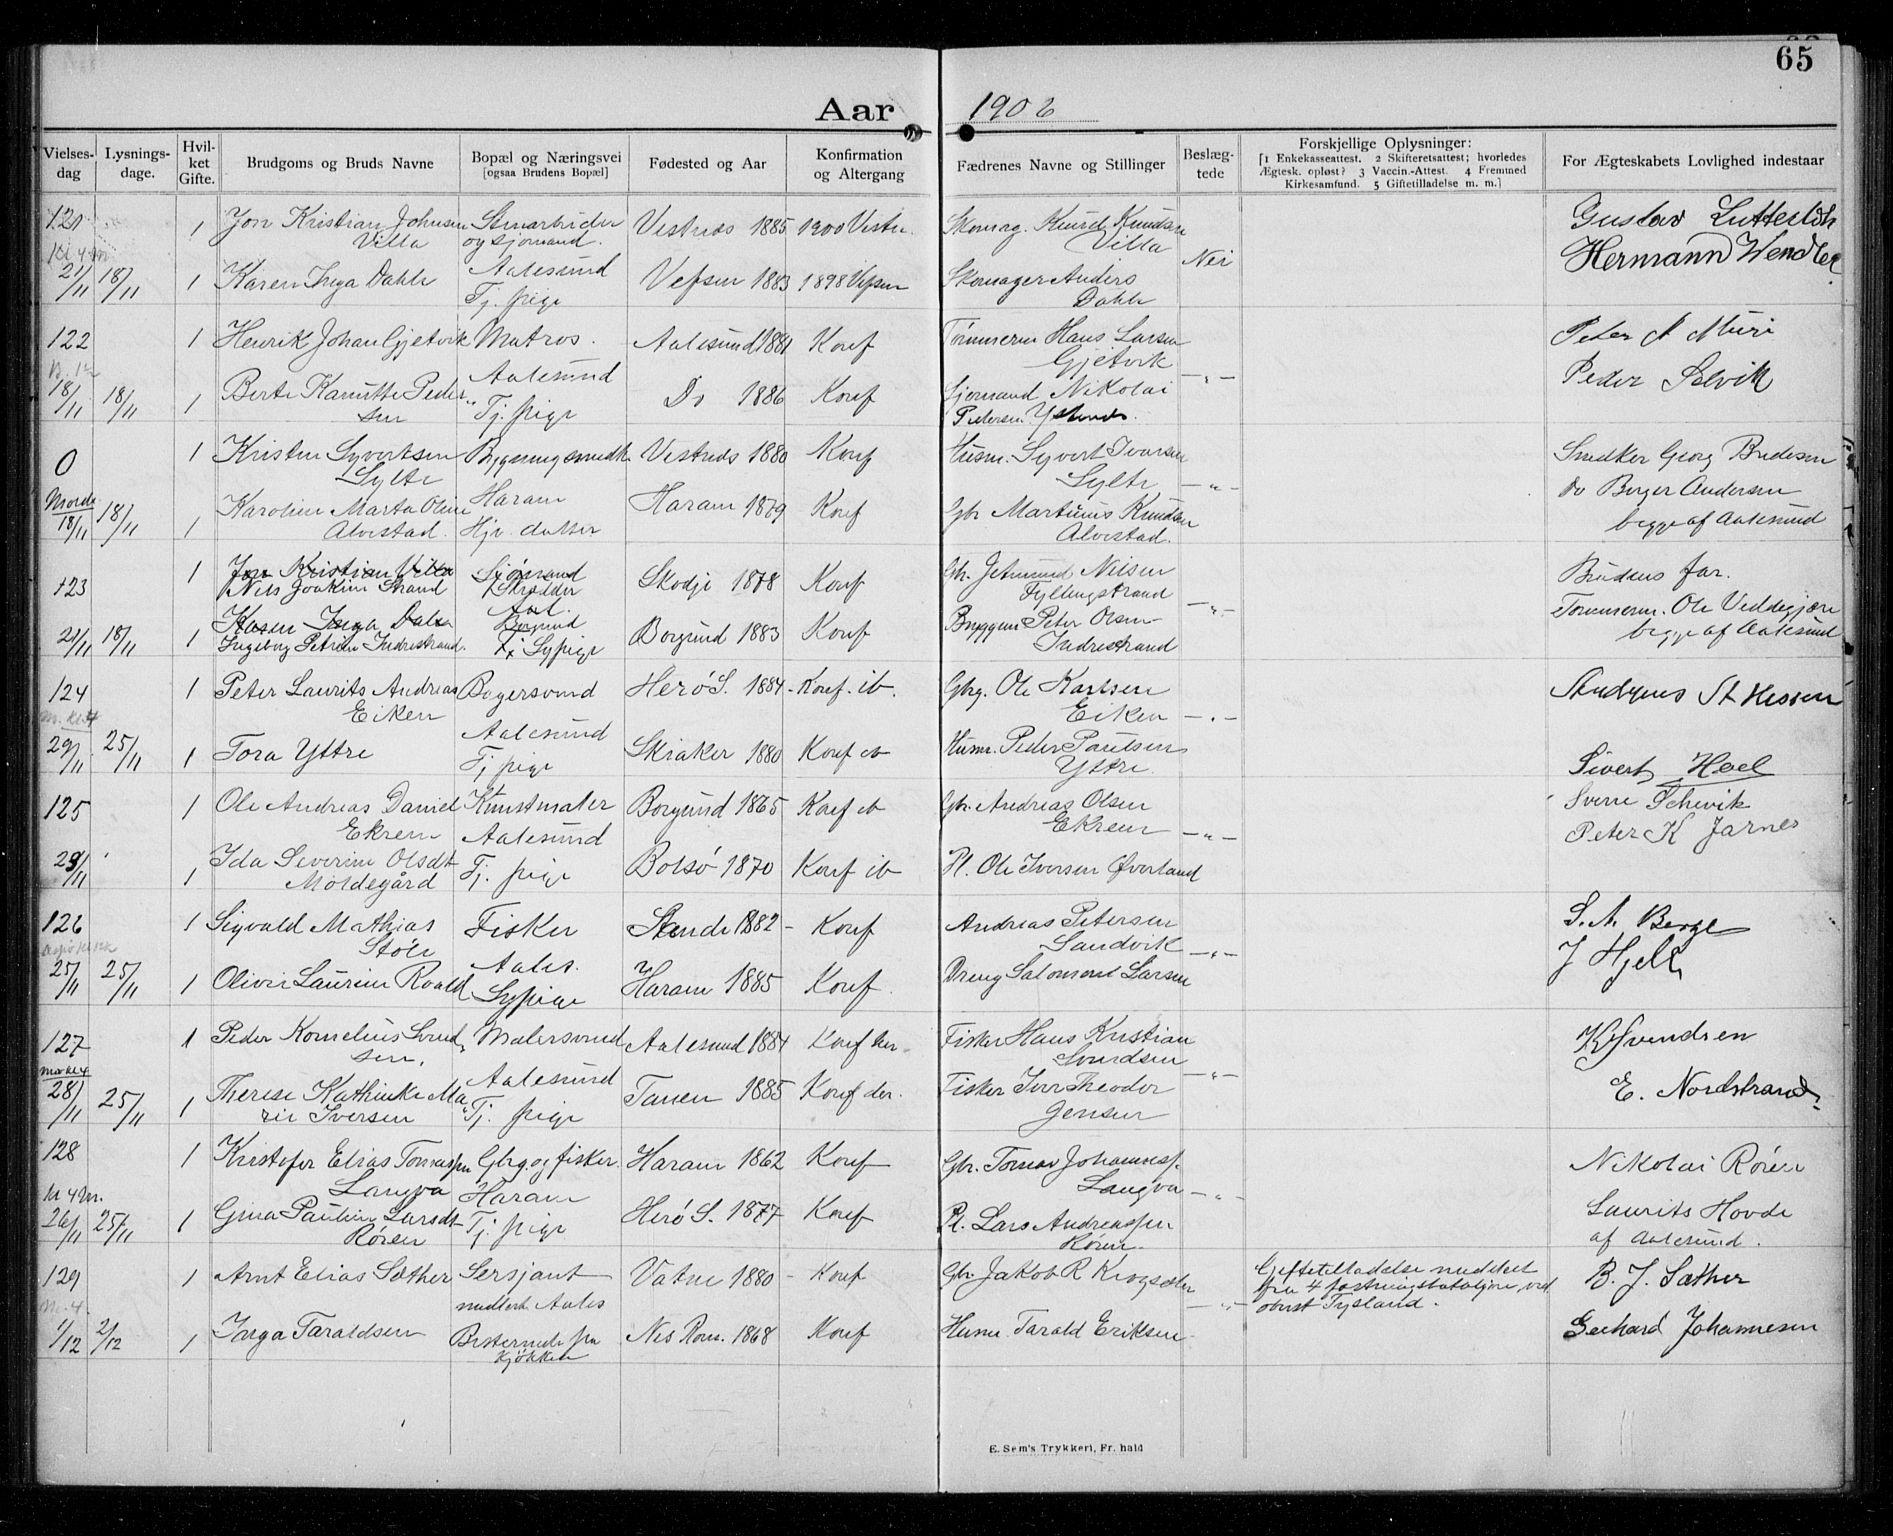 65
Aar 1906
Vielses-dag
Lysnings-dage.
Hvil-ket Gifte.
Brudgoms og Bruds Navne
Bopæl og Næringsvei [ogsaa Brudens Bopæl]
Fødested og Aar
Konfirmation og Altergang
Fædrenes Navne og Stillinger
Beslæg-tede
Forskjellige Oplysninger:
[1 Enkekasseattest. 2 Skifteretsattest; hvorledes
Ægtesk. opløst? 3 Vaccin.-Attest. 4 Fremmed
Kirkesamfund. 5 Giftetilladelse m. m.]
For Ægteskabets Lovlighed indestaar
121 1 Jon Kristian Johnsen Stenarbeider Vestnes 1885 1900 Vestn. Skomag. Knud Knudsen Gustav
Villa og sjømand. Villa Nei Hermann Wendler
21/11 18/11 1 Karen Inga Dahle Aalesund Vefsen 1883 1898 Vefsen Skomager Anders
Tj. pige Dahle
122 1 Henrik Johan Gjetvik Matros. Aalesund 1881 Konf Tømmerm Hans Larsen Peter A Muri
Gjetvik
18/11 18/11 1 Berte Kanutte Peder- Aalesund Do 1886 Konf Sjømand Nikolai -„- Peder Selvik
sen Tj. pige Pedersen
0 1 Kristen Syvertsen Bygningssnedk Vestnes 1880 Konf Husm. Syvert Iversen Snedker Georg
Sylte Sylte -„-
Molde 18/11 18/11 1 Karoline Marta Oline Haram Haram 1879 Konf Gbr Martinus Knudsen Do Berger Andersen
Alvestad. Hjv. datter Alvestad. begge af Aalesund
123 1 Jon Kristian Villa Sjømand Skodje 1878 Konf Gbr. Nilsen Brudens far.
Nils Joakim Strand Fyllingstrand -„-
21/11 18/11 1 Karen Inga Dahle Aal. Borgund Borgund 1883 Konf Peter Olsen Tømmerm. Ole
Ingeborg Petrine Indrestrand. Sypige Indrestrand begge af Aalesund
124 1 Peter Laurits Andreas Bagersvend Herø S. 1884 - Konf. ib. Gbrg. Ole Karlsen
Eiken Eiken -„-
29/11 25/11 1 Tora Yttre Aalesund Skiaker 1880 Konf ib Husm. Peder Paulsen
Tj pige Yttre Sivert Hoel
125 1 Ole Andreas Daniel Kunstmaler Borgund 1865 Konf ib Gbr. Andreas Olsen
Ekrem Aalesund Ekrem -„- Peter K Jarnes
29/11 1 Ida Severine Olsdt Tj. pige Bolsø 1870 Konf ib Pl. Ole Iversen Øverland
Moldegård
126 1 Sigvald Mathias Fisker Sande 1882 - Konf Andreas Petersen S. A. Berge
Støle Sandvik -„-
25/11 25/11 1 Olivie Laurine Roald Aales. Haram 1885 Konf. Dreng Salomon Larsen J Hjelle
Sypige
127 1 Peder Kornelius Svend- Malersvend Aalesund 1884 Konf her - Fisker Hans Kristian K Svendsen
sen. Svendsen
28/11 25/11 1 Therese Kathinke Ma- Aalesund Tanen 1885 Konf der. Fisker Iver Theodor -„- E. Nordstrand
rie Iversen Tj. pige Jensen
128 1 Kristofer Elias Tomassen Gbrg. og fisker. Haram 1862 Konf Gbr. Tomas Johanness. Nikolai Røren
Langva Langva -„-
26/11 25/11 1 Gina Pauline Larsdt- Haram Herø S. 1877 Konf Pl. Lars Andreassen Laurits Hovde
Røren Tj. pige Røren af Aalesund.
129 1 Arnt Elias Sæther Sersjant Vatne 1880 - Konf Gbr Jakob R Krogsæter Giftetilladelse meddelt B. J. Sæther
midlert. Aales -„- fra 4 bataljon ved
oberst Tysland.
1/12 2/12 1 Inga Taraldsen Besternede fra Nes Rom. 1868 Konf Husm. Tarald Eriksen Gerhard Johannesen
kjøkken
E. Sem's Trykkeri, Fr. hald